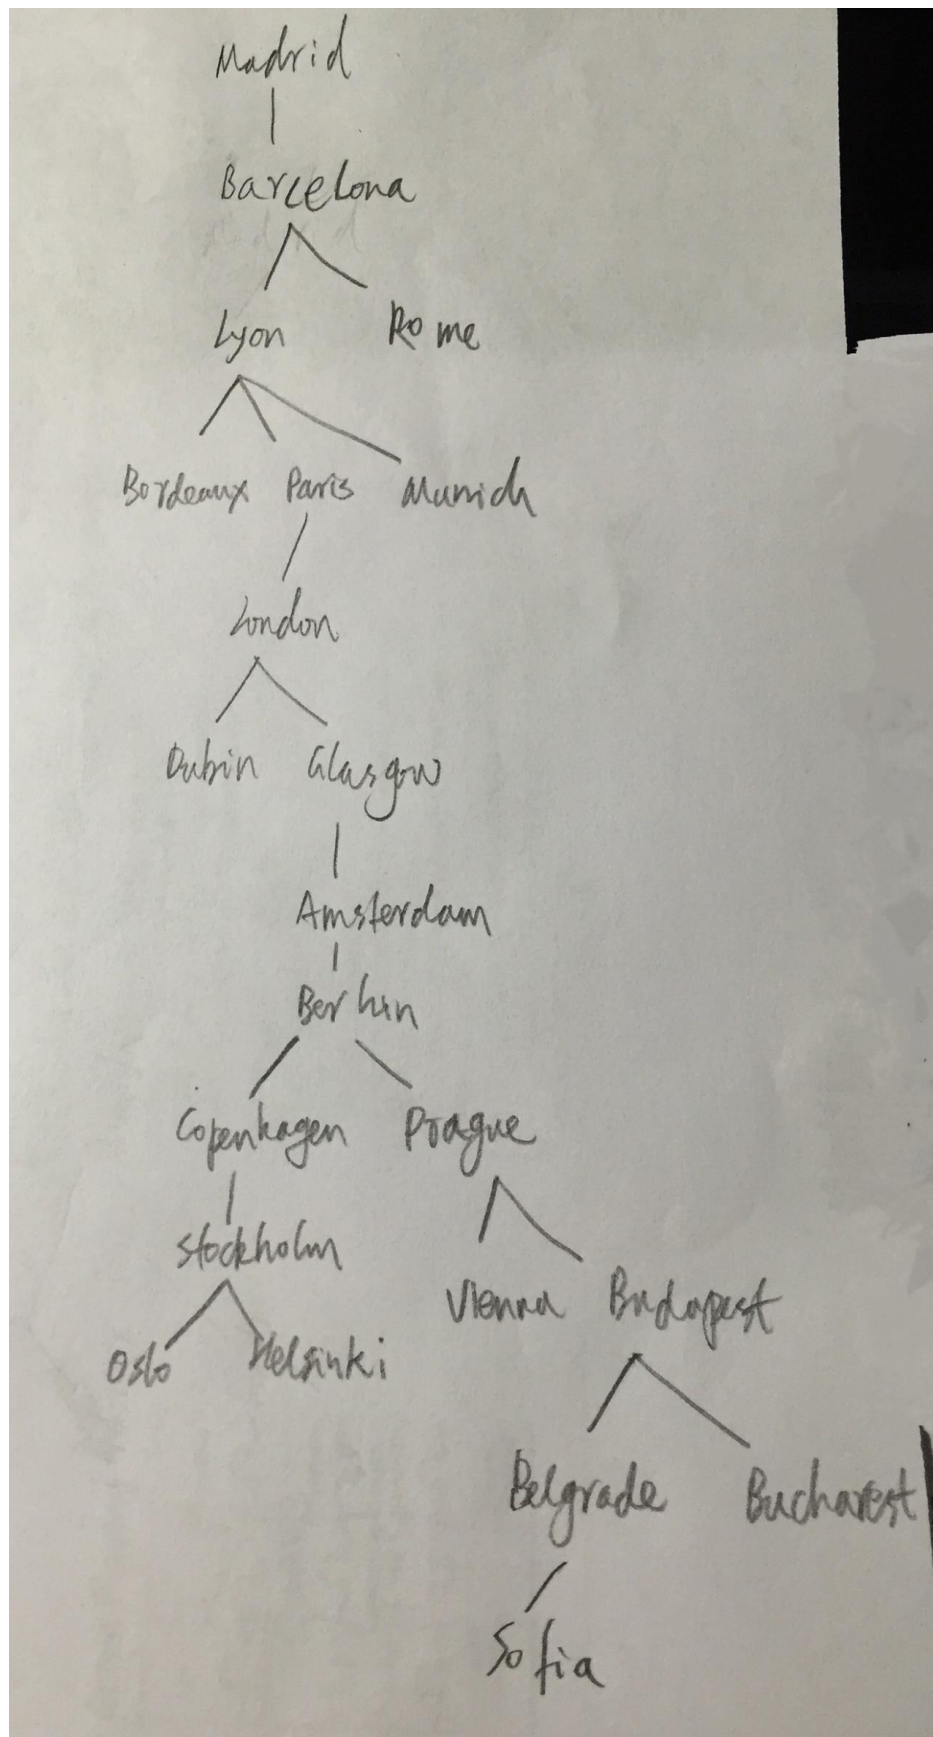 Madrid
Barcelona
Lyon Rome
Bordeaux Paris Munich
London
Dubin Glasgow
Amsterdam
Berlin
Copenhagen Prague
Stockholm
Vienna Budapest
Oslo Helsinki
Belgrade Bucharest
Sofia